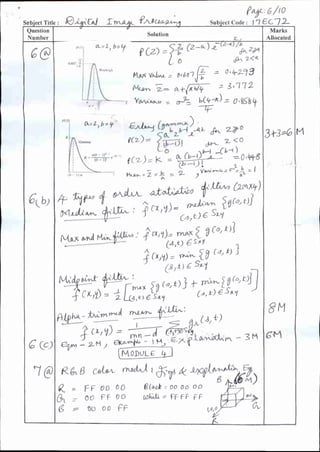 Page: 6/10
Subject Title : Digital Image Processing Subject Code : 17EC72
Question Number Solution Marks Allocated
6(a) a=2, b=4 P(z) = { 2/b (z-a) e^-(z-a)²/b for z≥a
0 for z<a
Max Value = 0.607 √(2/b) = 0.4293
Mean z̄ = a+√(πb/4) = 3.772
Variance = σ² = b(4-π)/4 = 0.8584
a=2, b=4 Erlang (gamma)
P(z) = { a^b z^(b-1)/(b-1)! e^-az for z≥0
0 for z<0
3+3=6M
P(z) = K = a(b-1)^(b-1)/(b-1)! e^-(b-1) = 0.448
Mean = z̄ = b/a = 2, Variance = σ² = b/a² = 1
6(b) 4 types of order statistics filters (2M×4)
Median filter : f̂(x,y) = median {g(s,t)}
(s,t)∈Sxy
Max and Min filters: f̂(x,y) = max {g(s,t)}
(s,t)∈Sxy
f̂(x,y) = min {g(s,t)}
(s,t)∈Sxy
Midpoint filter :
f̂(x,y) = 1/2 [max {g(s,t)} + min {g(s,t)}]
(s,t)∈Sxy (s,t)∈Sxy
Alpha-trimmed mean filter:
f̂(x,y) = 1/(mn-d) Σ gr(s,t)
(s,t)∈Sxy
8M
6(c) Eqn - 2M, Example - 1M, Explanation - 3M 6M
MODULE 4
7(a) RGB color model : Fig & explanation Fig
R = FF 00 00 Black : 00 00 00
G = 00 FF 00 White = FF FF FF
B = 00 00 FF
B
G
R